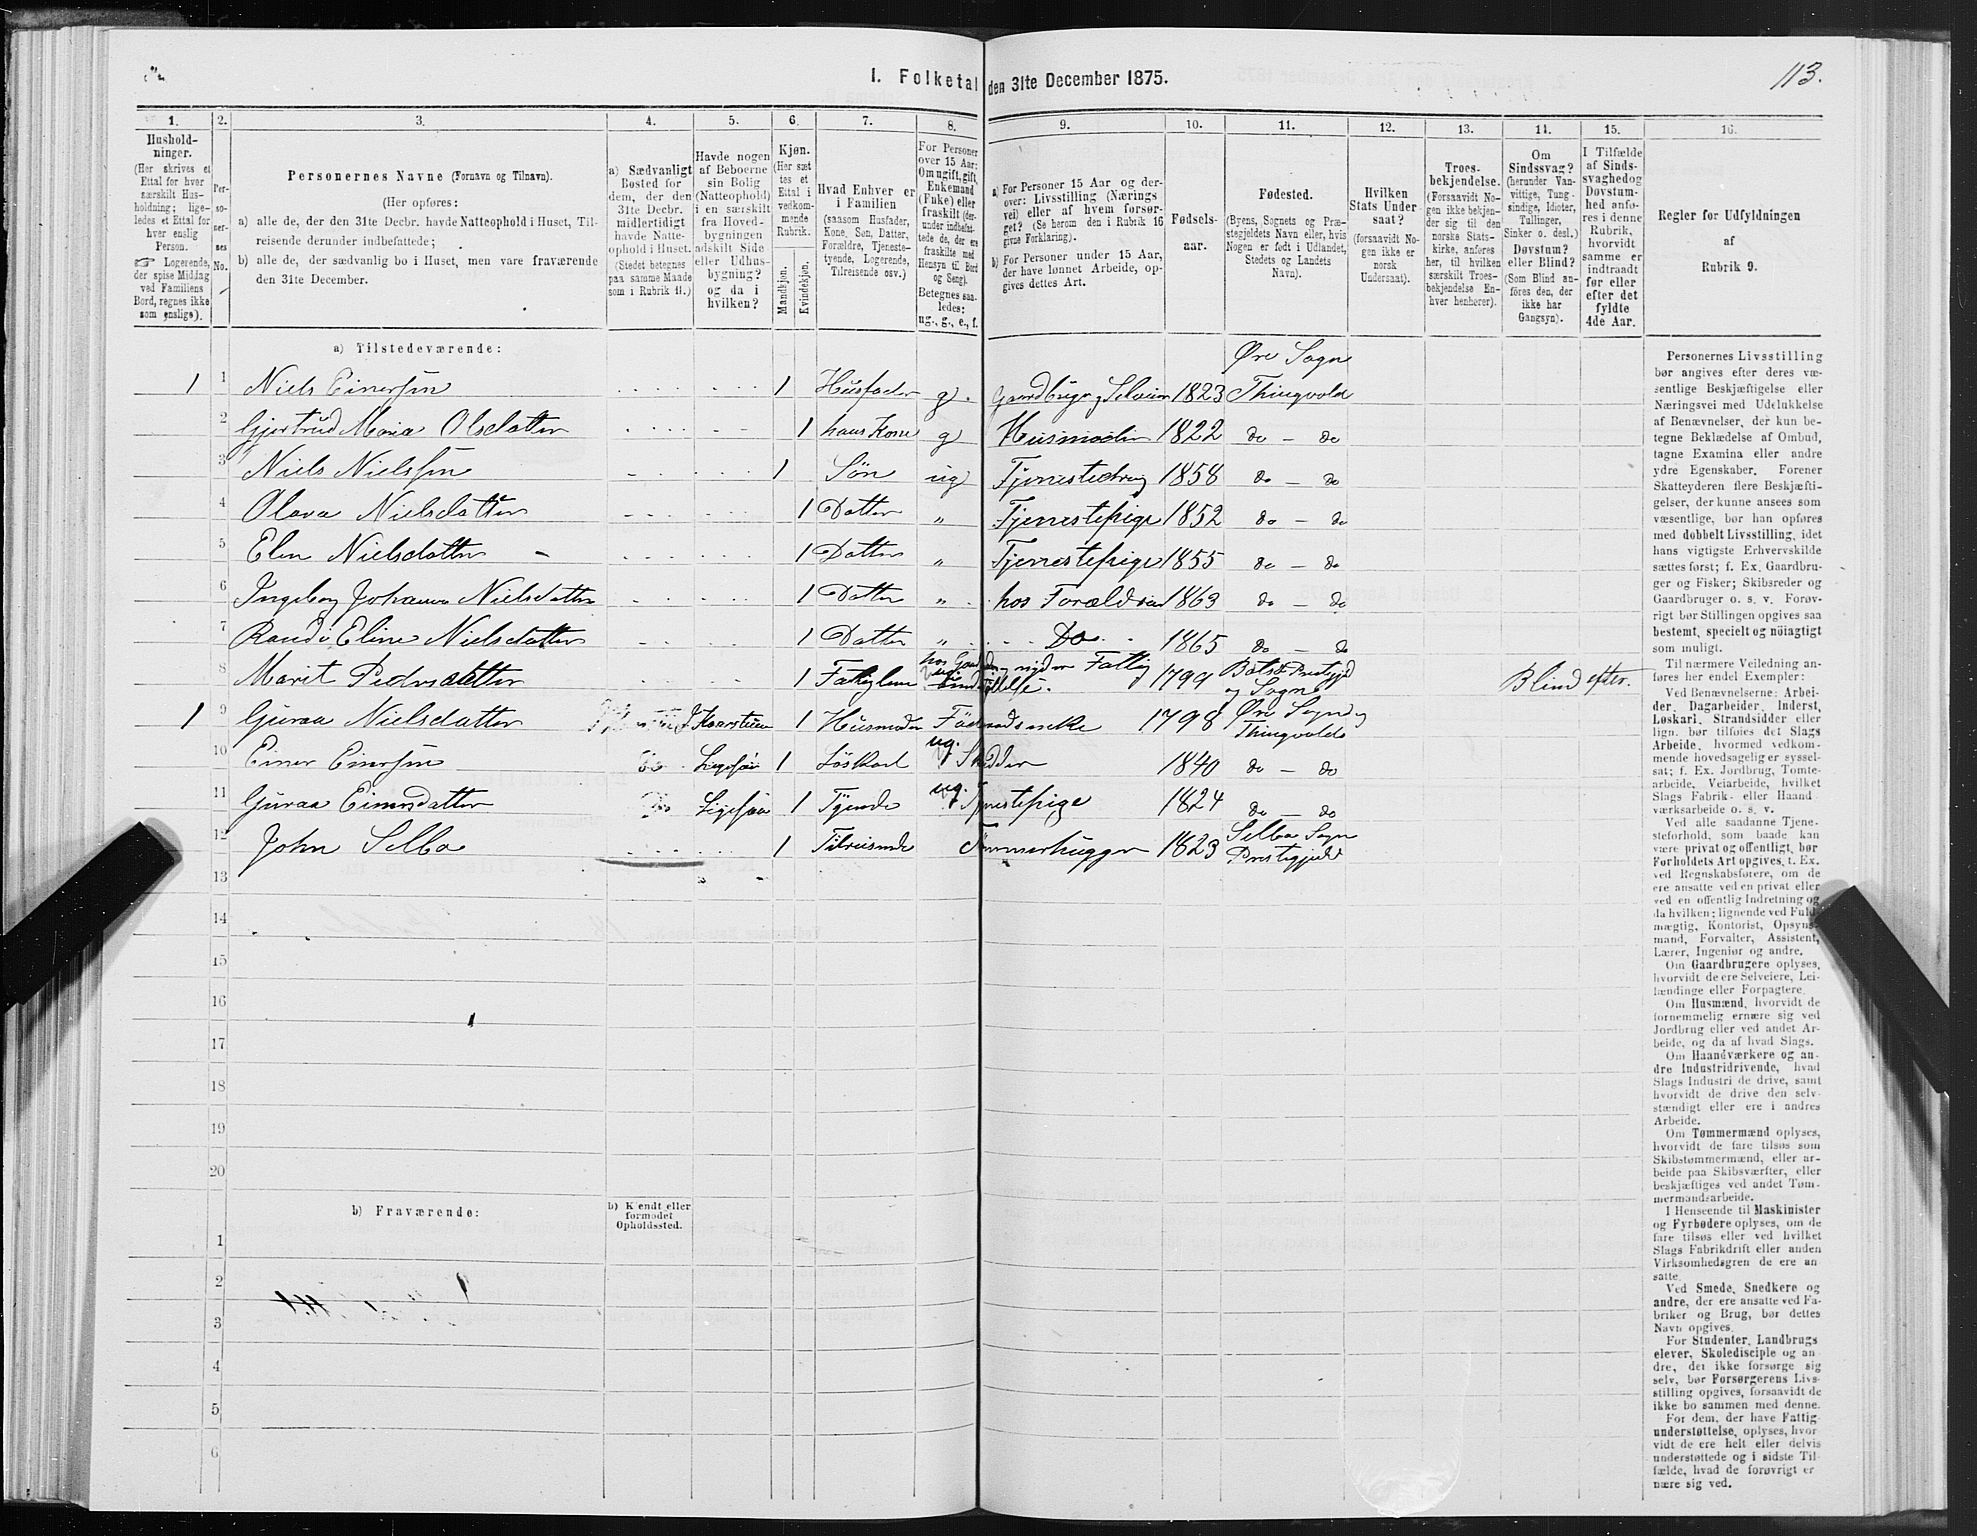 I. Folketal den 31te December 1875.
113.
1.
Hushold-
ninger.
(Her skrives et
Ettal for hver
særskilt Hus-
holdning; lige-
ledes et Ettal for
hver enslig
Person.
☞ Logerende,
der spise Middag
ved Familiens
Bord, regnes ikke
som enslige).
2.
Per-
so-
ner-
nes
No.
3.
Personernes Navne (Fornavn og Tilnavn).
(Her opføres:
a) alle de, der den 31te Decbr. havde Natteophold i Huset, Til-
reisende derunder indbefattede;
b) alle de, der sædvanlig bo i Huset, men vare fraværende
den 31te December.
4.
a) Sædvanligt
Bosted for
dem, der den
31te Decbr.
midlertidigt
havde Natte-
ophold i Huset.
(Stedet betegnes
paa samme Maade
som i Rubrik 11.)
5.
Havde nogen
af Beboerne
sin Bolig
(Natteophold)
i en særskilt
fra Hoved-
bygningen
adskilt Side-
eller Udhus-
bygning?
og da i
hvilken?
6.
Kjøn.
(Her sæt-
tes et
Ettal i
vedkom-
mende
Rubrik.
Mandkjøn.
Kvindekjøn.
7.
Hvad Enhver er
i Familien
(saasom Husfader,
Kone, Søn, Datter,
Forældre, Tjeneste-
tyende, Logerende,
Tilreisende osv.)
8.
For Personer
over 15 Aar:
Om ugift, gift,
Enkemand
(Enke) eller
fraskilt (der-
under indbefat-
tede de, der ere
fraskilte med
Hensyn til Bord
og Seng).
Betegnes saa-
ledes:
ug., g., e., f.
9.
a) For Personer 15 Aar og der-
over: Livsstilling (Nærings-
vei) eller af hvem forsør-
get? (Se herom den i Rubrik 16
givne Forklaring).
b) For Personer under 15 Aar,
der have lønnet Arbeide, op-
gives dettes Art.
10.
Fødsels-
aar.
11.
Fødested.
(Byens, Sognets og Præ-
stegjeldets Navn eller, hvis
Nogen er født i Udlandet,
Stedets og Landets
Navn).
12.
Hvilken
Stats Under-
saat?
(forsaavidt No-
gen ikke er
norsk
Undersaat).
13.
Troes-
bekjendelse.
(Forsaavidt No-
gen ikke bekjen-
der sig til den
norske Stats-
kirke, anføres
her, til hvilken
særskilt Troes-
bekjendelse En-
hver henhører).
14.
Om
Sindssvag?
(herunder Van-
vittige, Tung-
sindige, Idioter,
Tullinger,
Sinker o. desl.)
Døvstum?
eller Blind?
(Som Blind an-
føres den, der
ikke har
Gangsyn).
15.
I Tilfælde
af Sinds-
svaghed og
Døvstum-
hed anfø-
res i denne
Rubrik,
hvorvidt
samme er
indtraadt
før eller
efter det
fyldte
4de Aar.
16.
Regler for Udfyldningen
af
Rubrik 9.
a) Tilstedeværende:
1 1 Niels Einersen 1 Husfader g. Gaardbruger Selveier 1823 Øre Sogn Thingvold
2 Gjertrud Maria Olsdatter 1 hans Kone g Husmoder 1822 do - do
3 Niels Nielssen 1 Søn ug Tjenestedreng 1858 do - do
4 Olava Nielsdatter 1 Datter „ Tjenestepige 1852 do - do
5 Elen Nielsdatter - 1 Datter „ Tjenestepige 1855 do - do
6 Ingeborg Johanna Nielsdatter 1 Datter „ hos Forældrene 1863 do - do
7 Randi Eline Nielsdatter 1 Datter „ Do 1865 do - do
8 Marit Pedersdatter 1 Fattiglem 1799 og Sogn Blind efter.
1 9 Guraa Nielsdatter 1 Husmoder 1798 Øre Sogn og Thingvolds
10 Einer Einersen do 1 Løskarl ug. Skredder 1840 do - do
11 Guraa Einersdatter Do 1 Tyende ug. Tjenestepige 1824 do - do
12 John Selbo 1 Tilreisende Tømmerhugger 1823 Selbo Sogn Prestegjeld
13
14
15
16
17
18
19
20
b) Fraværende:
b) Kjendt eller
formodet
Opholdssted.
1
2
3
4
5
6
Personernes Livsstilling
bør angives efter deres væ-
sentlige Beskjæftigelse eller
Næringsvei med Udelukkelse
af Benævnelser, der kun be-
tegne Beklædelse af Ombud,
tagne Examina eller andre
ydre Egenskaber. Forener
Skatteyderen flere Beskjæfti-
gelser, der kunne ansees som
væsentlige, bør han opføres
med dobbelt Livsstilling, idet
hans vigtigste Erhvervskilde
sættes først; f. Ex. Gaardbru-
ger og Fisker; Skibsreder og
Gaardbruger o. s. v. Forøv-
rigt bør Stillingen opgives saa
bestemt, specielt og nøiagtigt
som muligt.
Til nærmere Veiledning an-
føres her endel Exempler:
Ved Benævnelserne: Arbei-
der, Dagarbeider, Inderst,
Løskarl, Strandsidder eller
lign. bør tilføies det Slags
Arbeide, hvormed vedkom-
mende hovedsagelig er syssel-
sat; f. Ex. Jordbrug, Tomte-
arbeide, Veiarbeide, hvilket
Slags Fabrik- eller Haand-
værksarbeide o. s. v.
Ved alle saadanne Tjene-
steforhold, som baade kan
være privat og offentligt, bør
Forholdets Art opgives, t. Ex.
ved Regnskabsførere, om de
ere ansatte ved en privat eller
ved en offentlig Indretning og
da hvilken; lignende ved Fuld-
mægtig, Kontorist, Opsyns-
mand, Forvalter, Assistent,
Lærer, Ingeniør og andre.
Om Gaardbrugere oplyses,
hvorvidt de ere Selveiere, Lei-
lændinge eller Forpagtere.
Om Husmænd, hvorvidt de
fornemmelig ernære sig ved
Jordbrug eller ved andet Ar-
beide, og da af hvad Slags.
Om Haandværkere og an-
dre Industridrivende, hvad
Slags Industri de drive, samt
hvorvidt de drive den selv-
stændigt eller ere i andres
Arbeide.
Om Tømmermænd oplyses,
hvorvidt de fare tilsøs som
Skibstømmermænd, eller ar-
beide paa Skibsværfter, eller
beskjæftiges ved andet Tøm-
mermandsarbeide.
I Henseende til Maskinister
og Fyrbødere oplyses, om de
fare tilsøs eller ved hvilket
Slags Fabrikdrift eller anden
Virksomhedsgren de ere an-
satte.
Ved Smede, Snedkere og
andre, der ere ansatte ved Fa-
briker og Brug, bør dettes
Navn opgives.
For Studenter, Landbrugs-
elever, Skoledisciple og an-
dre, der ikke forsørge sig
selv, bør Forsørgerens Livs-
stilling opgives, forsaavidt de
ikke bo sammen med denne.
For dem, der have Fattig-
understøttelse, oplyses, hvor-
vidt de ere helt eller delvis
understøttede og i sidste Til-
fælde, hvad de forøvrigt er-
nære sig ved.